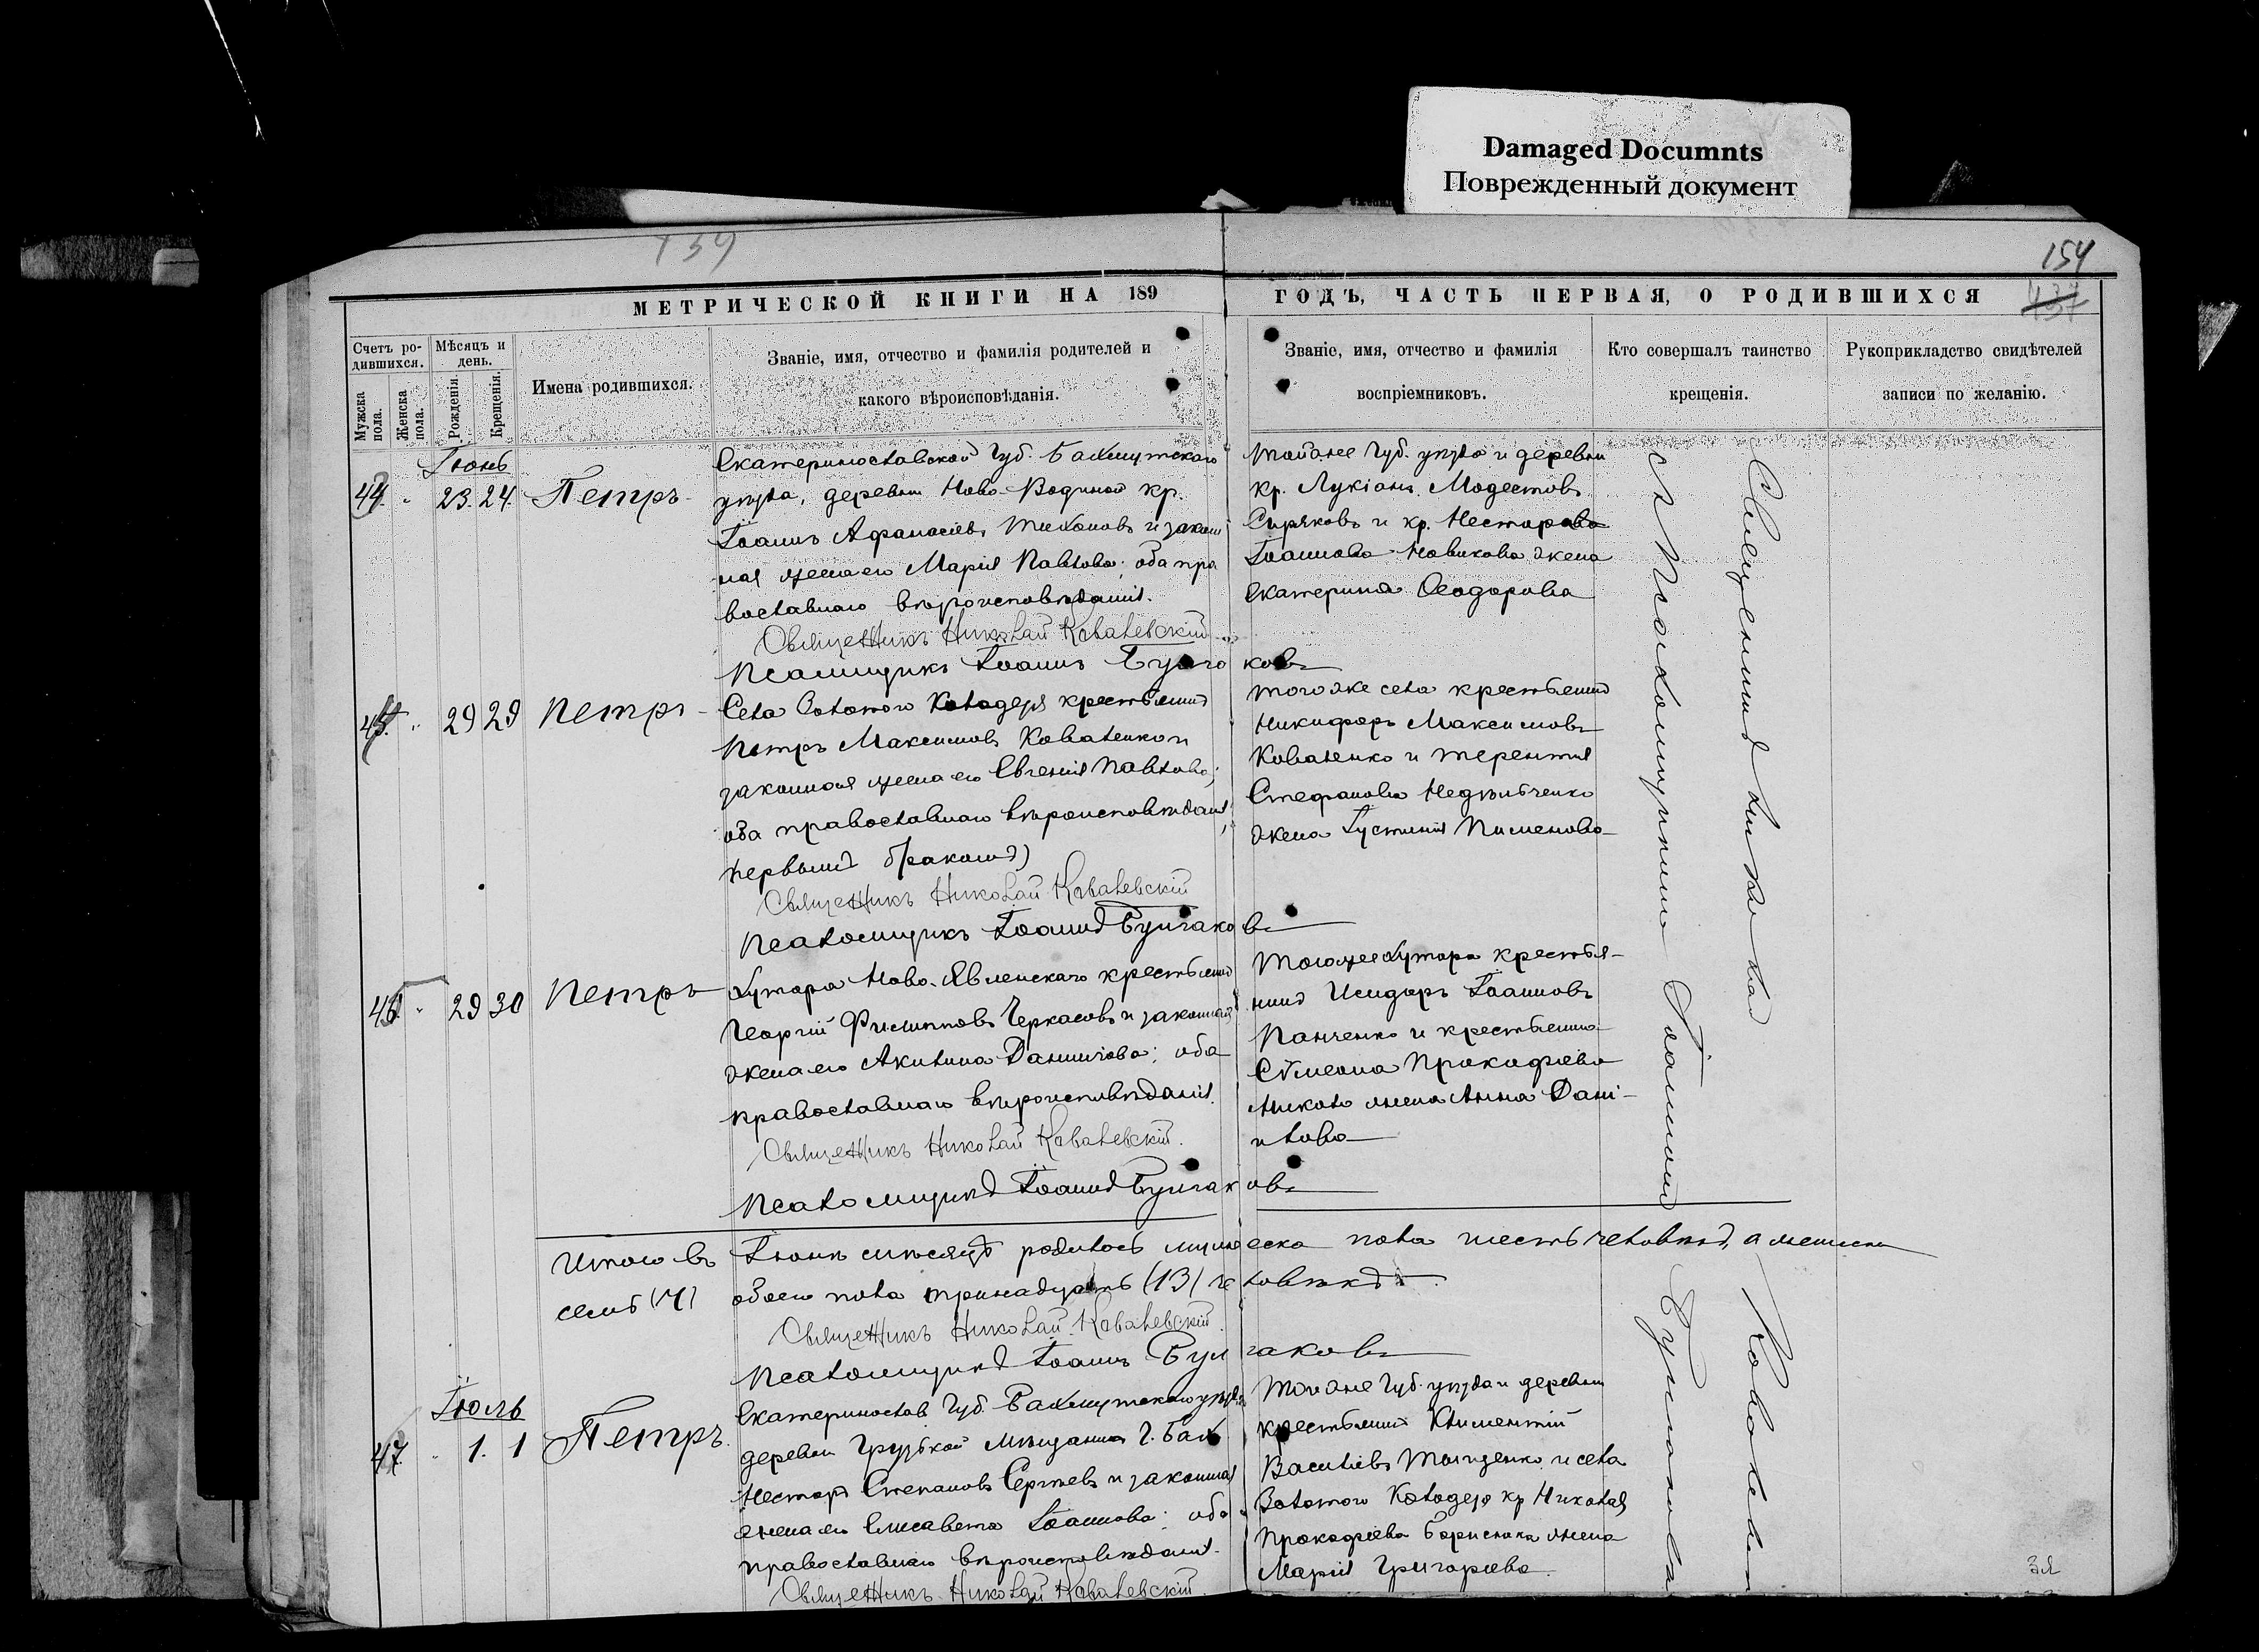 Damaged Documnts
Поврежденный документ
139
154
МЕТРИЧЕСКОЙ КНИГИ НА 189
ГОДЪ, ЧАСТЬ ПЕРВАЯ, О РОДИВШИХСЯ
437
Счетъ ро-
дившихся.
Мужска
пола.
Женска
пола.
Мѣсяцъ и
день.
Рожденія.
Крещенія.
Имена родившихся.
Званіе, имя, отчество и фамилія родителей и
какого вѣроисповѣданія.
Званіе, имя, отчество и фамилія
воспріемниковъ.
Кто совершалъ таинство
крещенія.
Рукоприкладство свидѣтелей
записи по желанію.
Іюнь
44. 23. 24. Петръ
Екатеринославской Губ. Бахмутскаго
уѣзда, деревни Ново-Водяной кр.
Іоаннъ Афанасіевъ Тихоновъ и закон
ная жена его Марія Павлова; оба пра
вославнаго вѣроисповѣданія.
Священникъ Николай Ковалевскій
Псаломщикъ Іоаннъ Булгаковъ
Тойже Губ. уѣзда и деревни
кр. Лукіанъ Модестовъ
Сиряковъ и кр. Нестора
Іоаннова Новикова жена
Екатерина Ѳеодорова
45. 29 29 Петръ
Села Золотого Колодезя крестьянинъ
Петръ Максимовъ Коваленко и
законная жена его Евгенія Павлова;
оба православнаго вѣроисповѣданія,
первымъ бракомъ)
Священникъ Николай Ковалевскій
Псаломщикъ Іоаннъ Булгаковъ
тогоже села крестьянинъ
Никифоръ Максимовъ
Коваленко и Терентія
Стефанова
жена Іустинія Пименова
46. 29 30 Петръ
Хутора Ново-Явленскаго крестьянинъ
Георгій Филипповъ Черкасовъ и законная
жена его Акилина Даниилова; оба
православнаго вѣроисповѣданія.
Священникъ Николай Ковалевскій.
Псаломщикъ Іоаннъ Булгаковъ
Тогоже хутора крестья-
нинъ Исидоръ Іоанновъ
Панченко и крестьянина
Сѵмеона Прокофіева
жена Анна Дані-
илова
Итого въ Іюнѣ мѣсяцѣ родилось мужеска пола шесть человѣкъ, а женска
семь (7) обоего пола тринадцать (13) человѣкъ.
Священникъ Николай Ковалевскій.
Псаломщикъ Іоаннъ Булгаковъ
Іюль
47. 1. 1 Петръ.
Екатеринослав Губ. Бахмутскаго уѣзда
деревни Грузской мѣщанинъ г. Бах
Несторъ Степановъ Сергѣевъ и законная
жена его Елисавета Іоаннова; оба
православнаго вѣроисповѣданія.
Священникъ Николай Ковалевскій.
Тойже Губ. уѣзда и деревни
крестьянинъ Климентій
Василіевъ и села
Золотого Колодезя кр Николая
Прокофіева Борисенка жена
Марія Григоріева.
Священникъ Николай Ковалевскій
съ Псаломщикомъ Іоанномъ Булгаковымъ